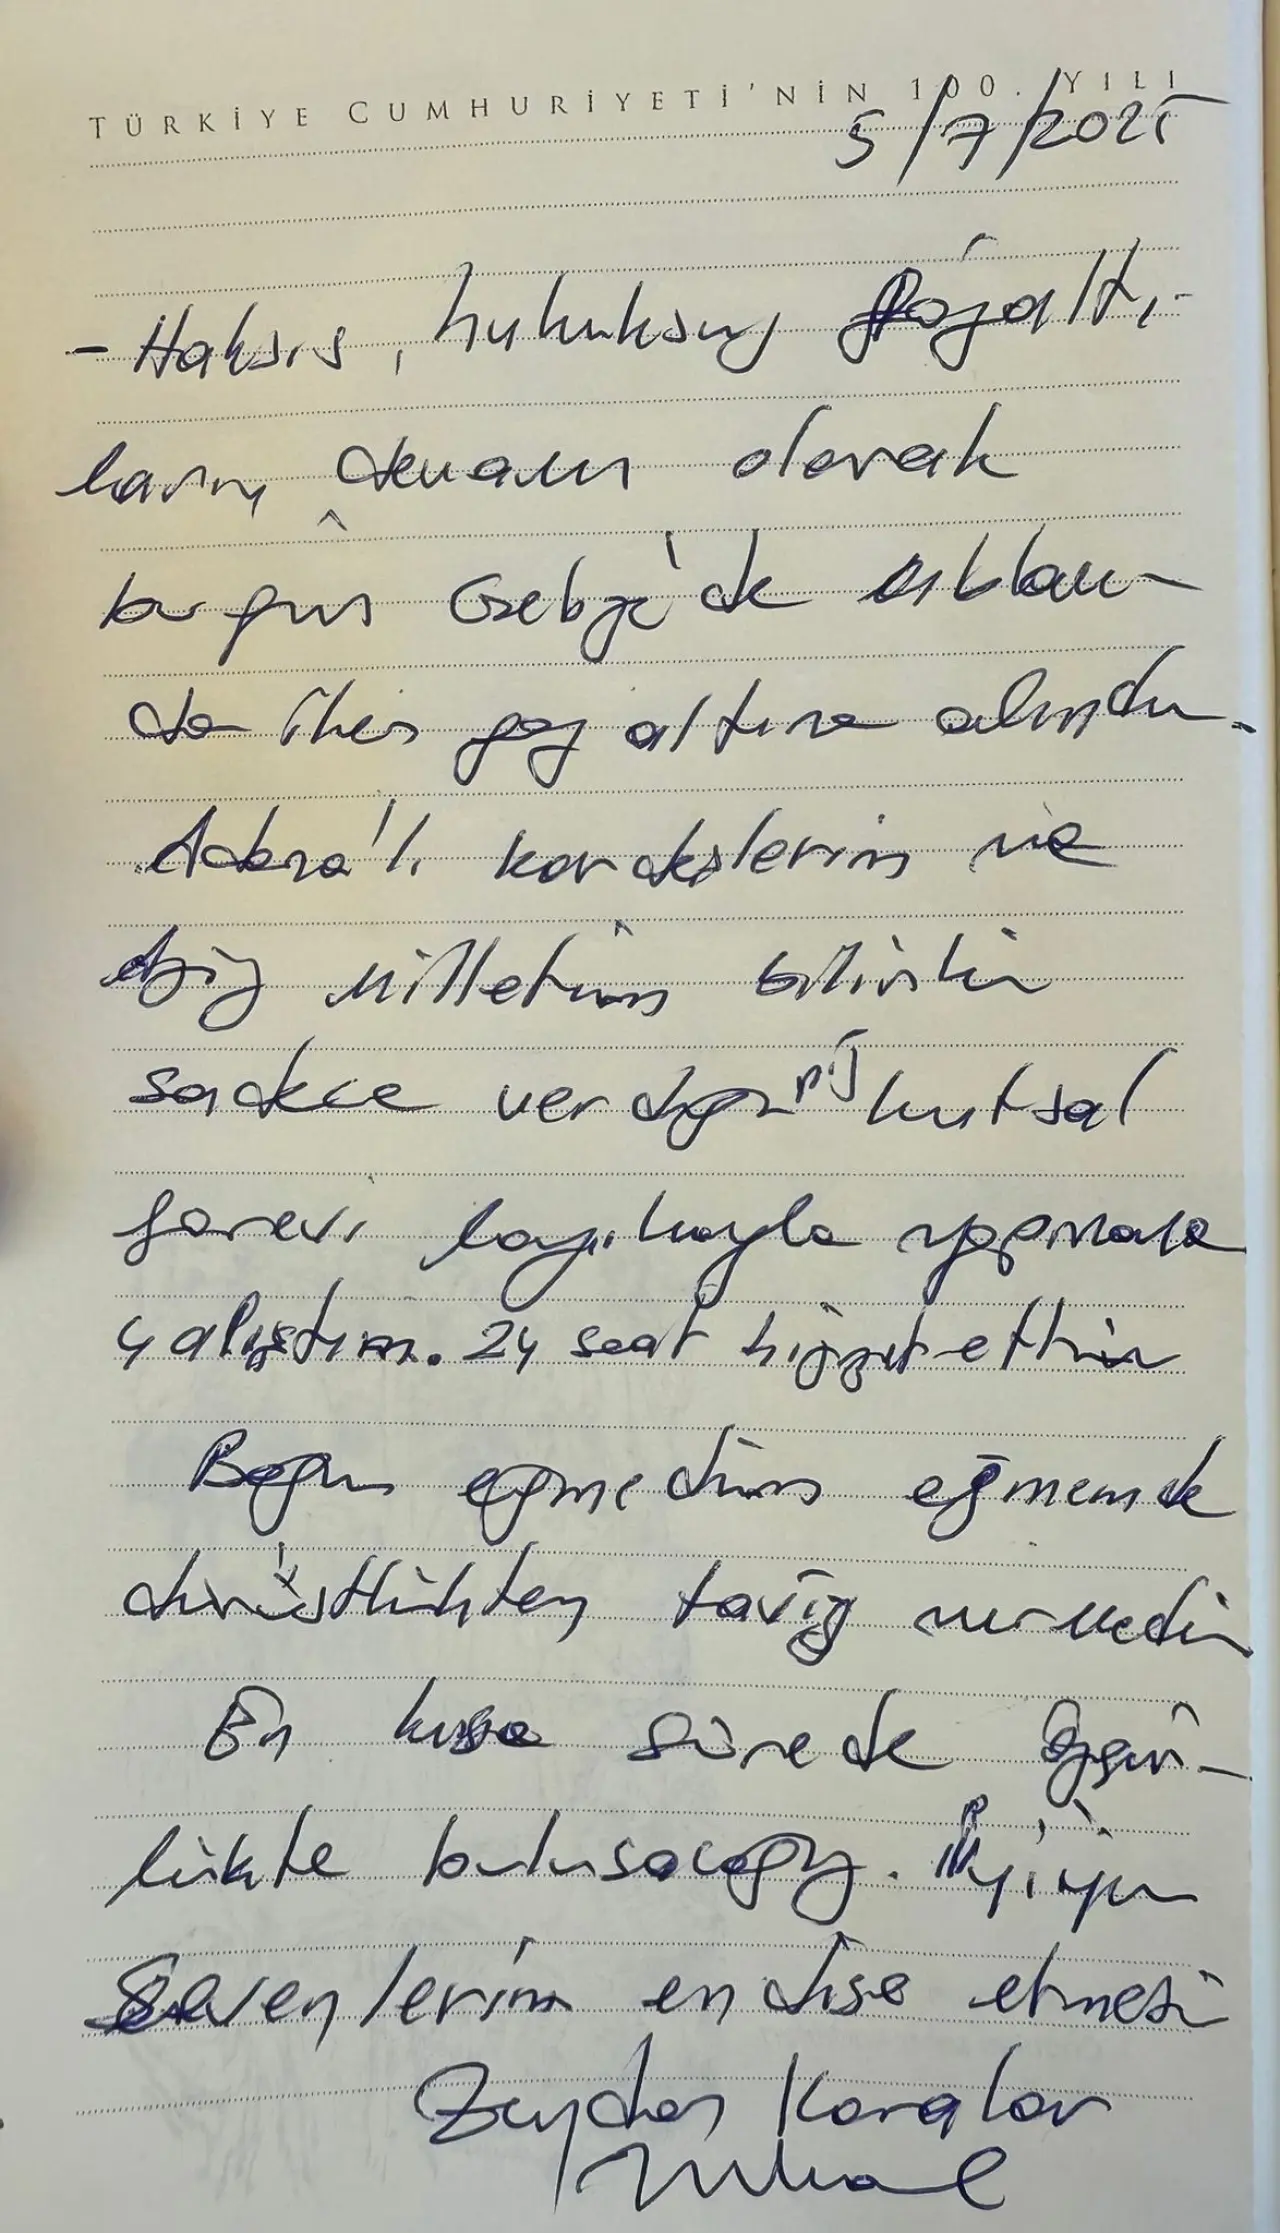 TÜRKİYE CUMHURİYETİ'NİN 100. YILI
5/7/2025
- Haksız, hukuksuz gözaltı-
ların devamı olarak
bugün Gebze'de ablam-
da iken göz altına alındım.
Adana'lı kardeşlerim ve
aziz milletim bilsin ki
sadece verdiğiniz kutsal
görevi layıkıyla yapmaya
çalıştım. 24 saat hizmet ettim
Boyun eğmedim eğmem de
dürüstlükten taviz vermedim
En kısa sürede özgür-
lükte buluşacağız. iyiyim
Sevenlerim endişe etmesin
Zeydan Karalar